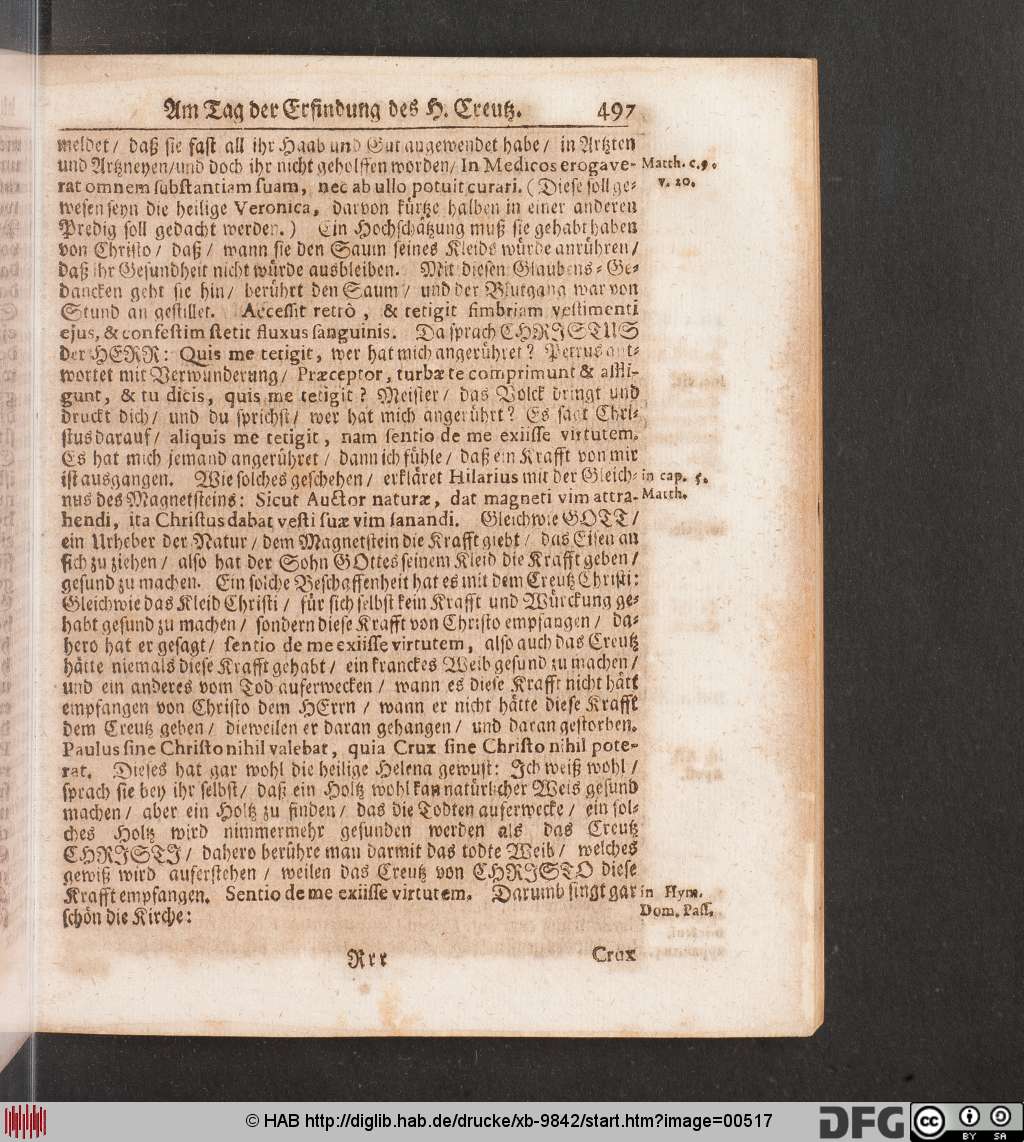 Am Tag der Erfindung des H. Creutz. 497
meldet / daß sie fast all ihr Haab und Gut angewendet habe / in Artzten
und Artzneyen/und doch ihr nicht geholffen worden/ In Medicos erogave- Matth. c. 9.
rat omnem substantiam suam, nec ab ullo potuit curari. ( Diese soll ge- v. 20.
wesen seyn die heilige Veronica, darvon kürtze halben in einer anderen
Predig soll gedacht werden. ) Ein Hochschätzung muß sie gehabt haben
von Christo / daß / wann sie den Saum seines Kleids würde anrühren /
daß ihr Gesundheit nicht würde ausbleiben. Mit diesen Glaubens-Ge-
dancken geht sie hin / berührt den Saum / und der Blutgang war von
Stund an gestillet. Accessit retrò, & tetigit fimbriam vestimenti
ejus, & confestim stetit fluxus sanguinis. Da sprach CHRISTUS
der HERR: Quis me tetigit, wer hat mich angerühret? Petrus ant-
wortet mit Verwunderung / Præceptor, turbæ te comprimunt & affli-
gunt, & tu dicis, quis me tetigit? Meister / das Volck dringt und
druckt dich / und du sprichst / wer hat mich angerührt? Es sagt Chri-
stus darauf / aliquis me tetigit, nam sentio de me exiisse virtutem.
Es hat mich jemand angerühret / dann ich fühle / daß ein Krafft von mir
ist ausgangen. Wie solches geschehen / erkläret Hilarius mit der Gleich- in cap. 5.
nus des Magnetsteins: Sicut Auctor naturæ, dat magneti vim attra- Matth.
hendi, ita Christus dabat vesti suæ vim sanandi. Gleichwie GOTT /
ein Urheber der Natur / dem Magnetstein die Krafft giebt / das Eisen an
sich zu ziehen / also hat der Sohn GOttes seinem Kleid die Krafft geben /
gesund zu machen. Ein solche Beschaffenheit hat es mit dem Creutz Christi:
Gleichwie das Kleid Christi / für sich selbst kein Krafft und Würckung ge-
habt gesund zu machen / sondern diese Krafft von Christo empfangen / da-
hero hat er gesagt / sentio de me exiisse virtutem, also auch das Creutz
hätte niemals diese Krafft gehabt / ein kranckes Weib gesund zu machen /
und ein anderes vom Tod auferwecken / wann es diese Krafft nicht hätt
empfangen von Christo dem HErrn / wann er nicht hätte diese Krafft
dem Creutz geben / dieweilen er daran gehangen / und daran gestorben.
Paulus sine Christo nihil valebat, quia Crux sine Christo nihil pote-
rat. Dieses hat gar wohl die heilige Helena gewust: Ich weiß wohl /
sprach sie bey ihr selbst / daß ein Holtz wohl kan natürlicher Weis gesund
machen / aber ein Holtz zu finden / das die Todten auferwecke / ein sol-
ches Holtz wird nimmermehr gefunden werden als das Creutz
CHRISTI / dahero berühre man darmit das todte Weib / welches
gewiß wird auferstehen / weilen das Creutz von CHRISTO diese
Krafft empfangen. Sentio de me exiisse virtutem. Darumb singt gar in Hym.
schön die Kirche: Dom. Pass.
Rrr Crux
© HAB http://diglib.hab.de/drucke/xb-9842/start.htm?image=00517
DFG cc BY SA